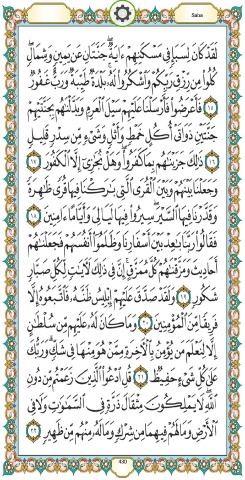 Saba
لَقَدْ كَانَ لِسَبَإٍ فِي مَسْكَنِهِمْ ءَايَةٌ ۖ جَنَّتَانِ عَن يَمِينٍ وَشِمَالٍ ۖ
كُلُوا۟ مِن رِّزْقِ رَبِّكُمْ وَٱشْكُرُوا۟ لَهُۥ ۚ بَلْدَةٌ طَيِّبَةٌ وَرَبٌّ غَفُورٌ
۝١٥ فَأَعْرَضُوا۟ فَأَرْسَلْنَا عَلَيْهِمْ سَيْلَ ٱلْعَرِمِ وَبَدَّلْنَٰهُم بِجَنَّتَيْهِمْ
جَنَّتَيْنِ ذَوَاتَىْ أُكُلٍ خَمْطٍ وَأَثْلٍ وَشَىْءٍ مِّن سِدْرٍ قَلِيلٍ
۝١٦ ذَٰلِكَ جَزَيْنَٰهُم بِمَا كَفَرُوا۟ ۖ وَهَلْ نُجَٰزِىٓ إِلَّا ٱلْكَفُورَ ۝١٧
وَجَعَلْنَا بَيْنَهُمْ وَبَيْنَ ٱلْقُرَى ٱلَّتِى بَٰرَكْنَا فِيهَا قُرًى ظَٰهِرَةً
وَقَدَّرْنَا فِيهَا ٱلسَّيْرَ ۖ سِيرُوا۟ فِيهَا لَيَالِىَ وَأَيَّامًا ءَامِنِينَ ۝١٨
فَقَالُوا۟ رَبَّنَا بَٰعِدْ بَيْنَ أَسْفَارِنَا وَظَلَمُوٓا۟ أَنفُسَهُمْ فَجَعَلْنَٰهُمْ
أَحَادِيثَ وَمَزَّقْنَٰهُمْ كُلَّ مُمَزَّقٍ ۚ إِنَّ فِى ذَٰلِكَ لَءَايَٰتٍ لِّكُلِّ صَبَّارٍ
شَكُورٍ ۝١٩ وَلَقَدْ صَدَّقَ عَلَيْهِمْ إِبْلِيسُ ظَنَّهُۥ فَٱتَّبَعُوهُ إِلَّا
فَرِيقًا مِّنَ ٱلْمُؤْمِنِينَ ۝٢٠ وَمَا كَانَ لَهُۥ عَلَيْهِم مِّن سُلْطَٰنٍ
إِلَّا لِنَعْلَمَ مَن يُؤْمِنُ بِٱلْءَاخِرَةِ مِمَّنْ هُوَ مِنْهَا فِى شَكٍّ ۗ وَرَبُّكَ
عَلَىٰ كُلِّ شَىْءٍ حَفِيظٌ ۝٢١ قُلِ ٱدْعُوا۟ ٱلَّذِينَ زَعَمْتُم مِّن دُونِ
ٱللَّهِ ۖ لَا يَمْلِكُونَ مِثْقَالَ ذَرَّةٍ فِى ٱلسَّمَٰوَٰتِ وَلَا فِى
ٱلْأَرْضِ وَمَا لَهُمْ فِيهِمَا مِن شِرْكٍ وَمَا لَهُۥ مِنْهُم مِّن ظَهِيرٍ ۝٢٢
430